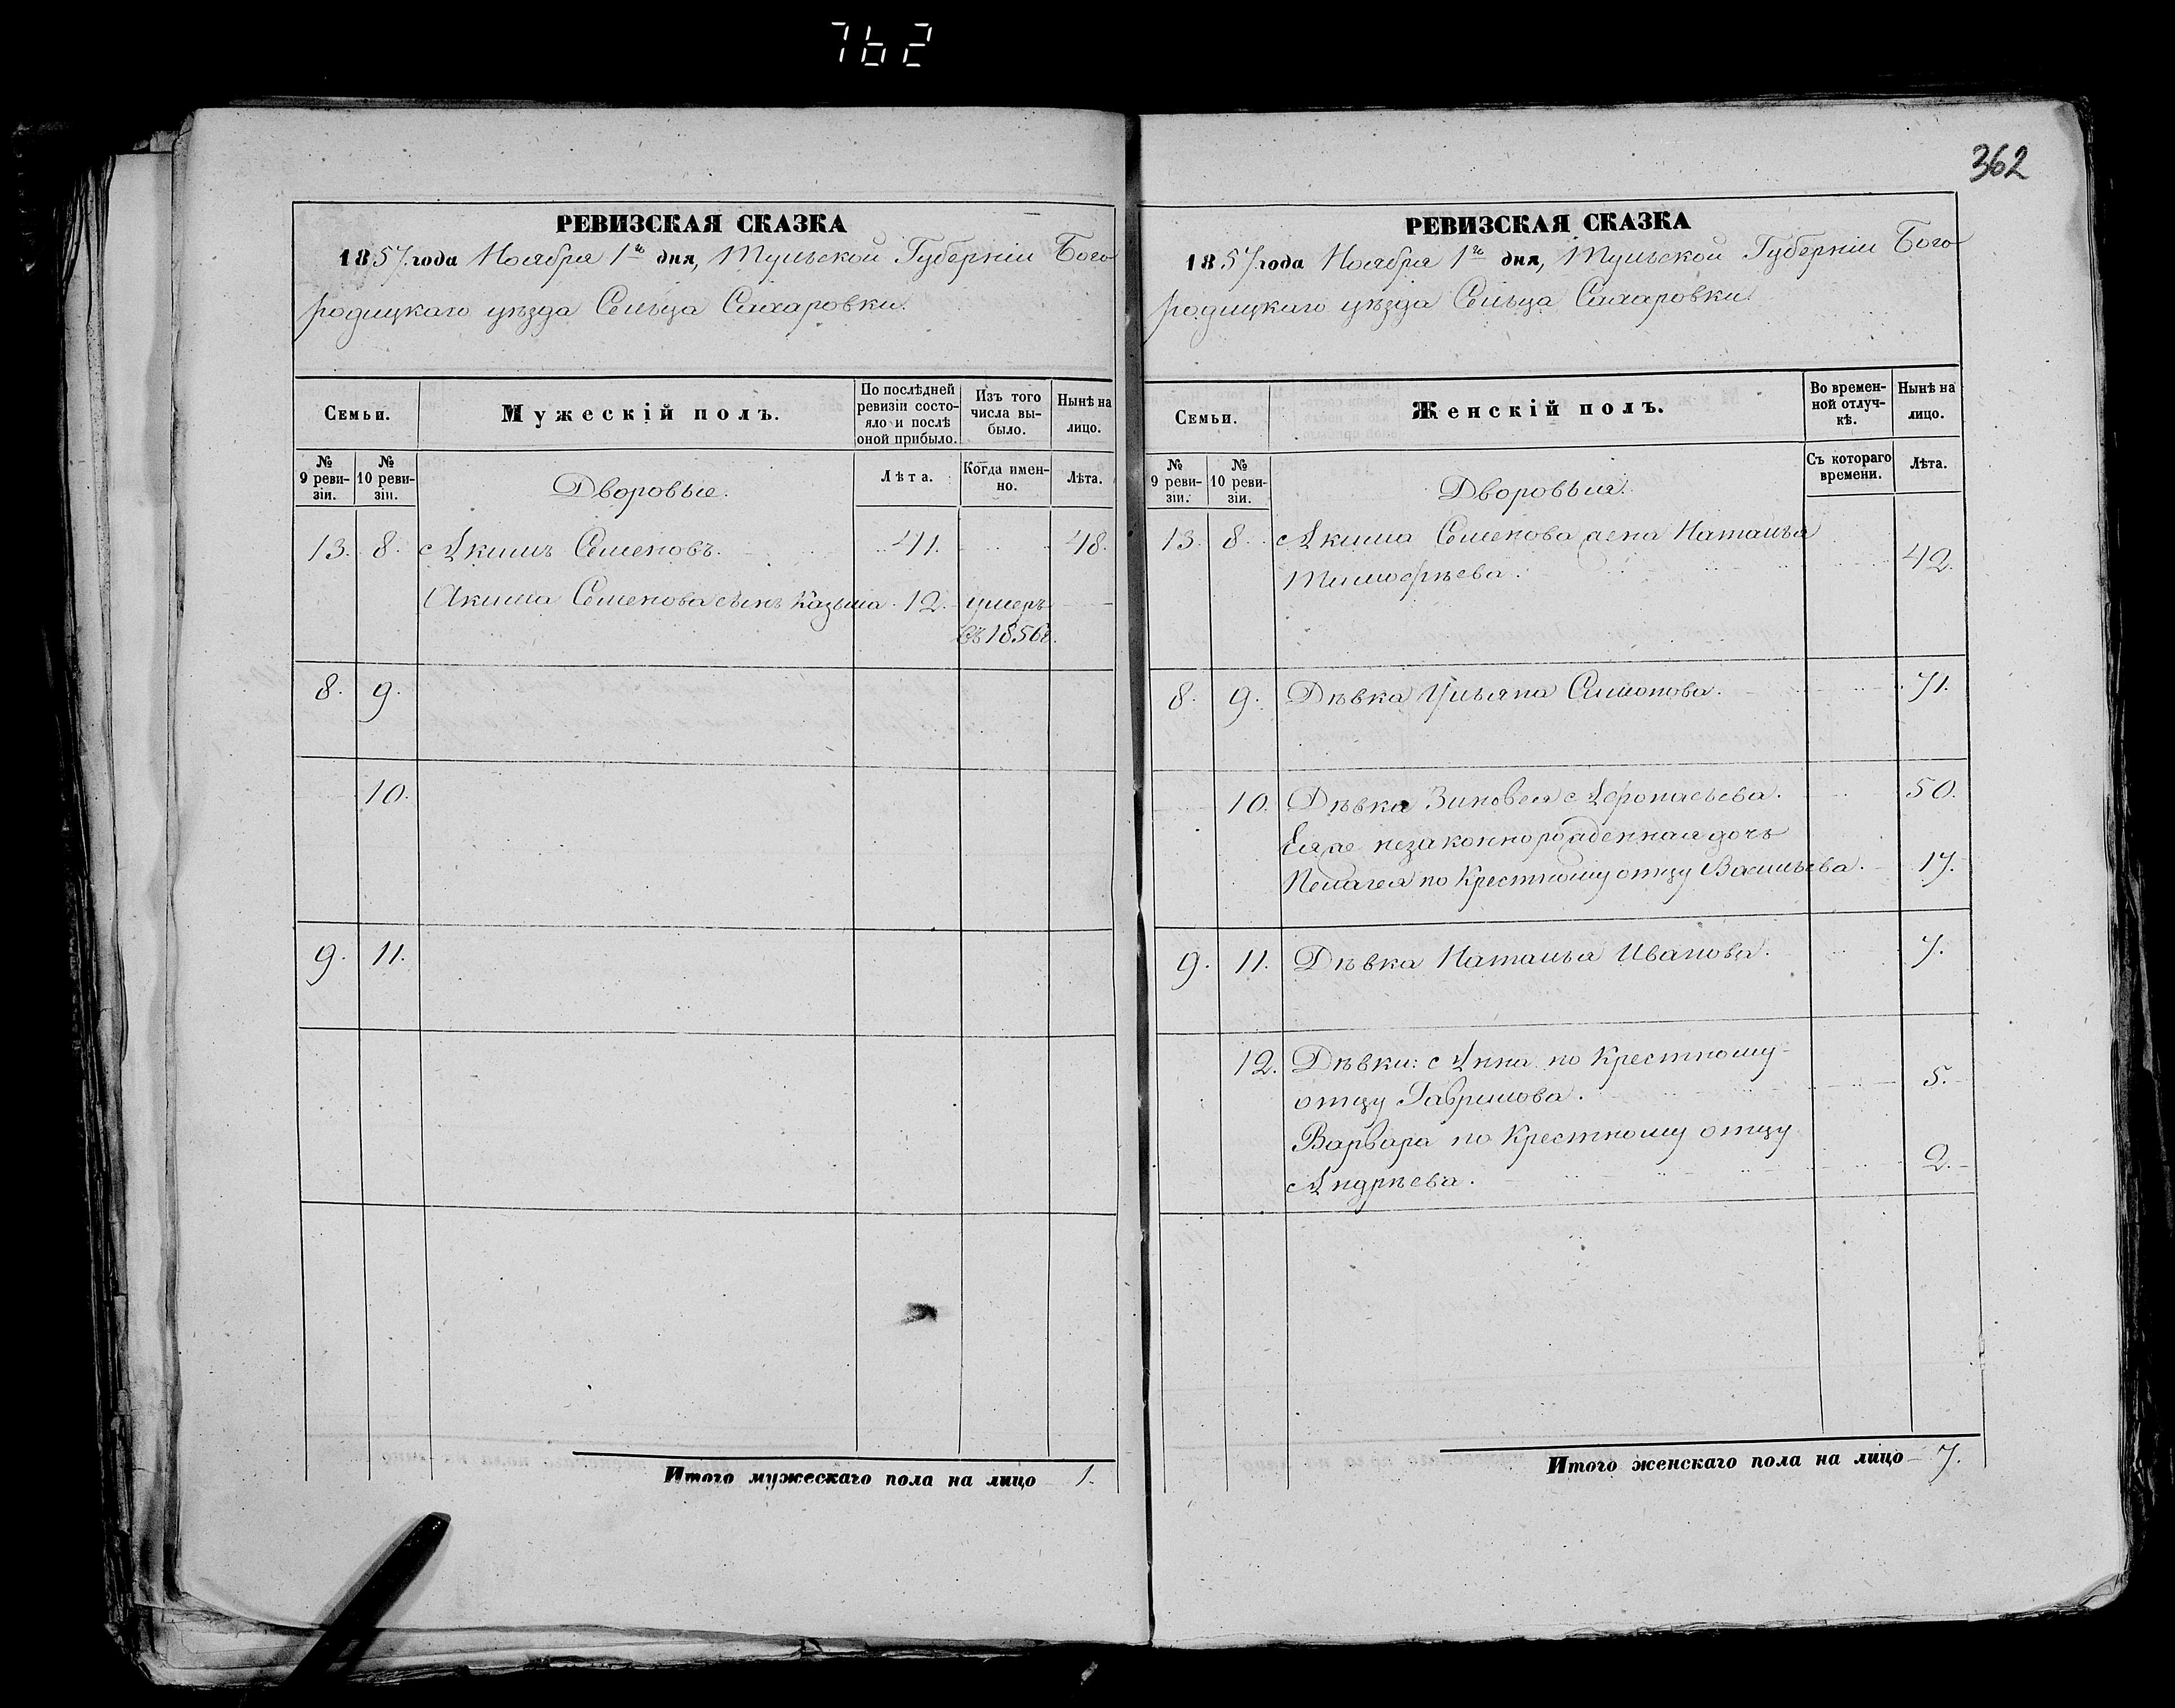 762
362
РЕВИЗСКАЯ СКАЗКА
1857 года Ноября 1го дня, Тульской Губерніи Бого
родицкаго уѣзда Сельца Сахаровки.
Семьи.
Мужескій полъ.
По послѣдней ревизіи состояло и послѣ оной прибыло.
Изъ того числа выбыло.
Нынѣ на лицо.
№ 9 ревизіи.
№ 10 ревизіи.
Дворовые.
Лѣта.
Когда именно.
Лѣта.
13. 8. Акимъ Семеновъ. 41. 48.
Акима Семенова сынъ Казьма. 12. умеръ
въ 1856г.
8. 9.
10.
9. 11.
Итого мужескаго пола на лицо 1.
РЕВИЗСКАЯ СКАЗКА
1857 года Ноября 1го дня, Тульской Губерніи Бого
родицкаго уѣзда Сельца Сахаровки.
Семьи.
Женскій полъ.
Во временной отлучкѣ.
Нынѣ на лицо.
№ 9 ревизіи.
№ 10 ревизіи.
Дворовыя.
Съ котораго времени.
Лѣта.
13. 8. Акима Семенова жена Наталья
Тимофѣева. 42.
8. 9. Дѣвка Ульяна Симонова. 71.
10. Дѣвка Зиновея Афонасьева. 50.
Ея же незаконнорожденная дочь
Пелагея по Крестному отцу Васильева. 17.
9. 11. Дѣвка Наталья Иванова. 7.
12. Дѣвки: Анна по Крестному
отцу Гаврилова. 5.
Варвара по Крестному отцу
Андрѣева. 2.
Итого женскаго пола на лицо 7.